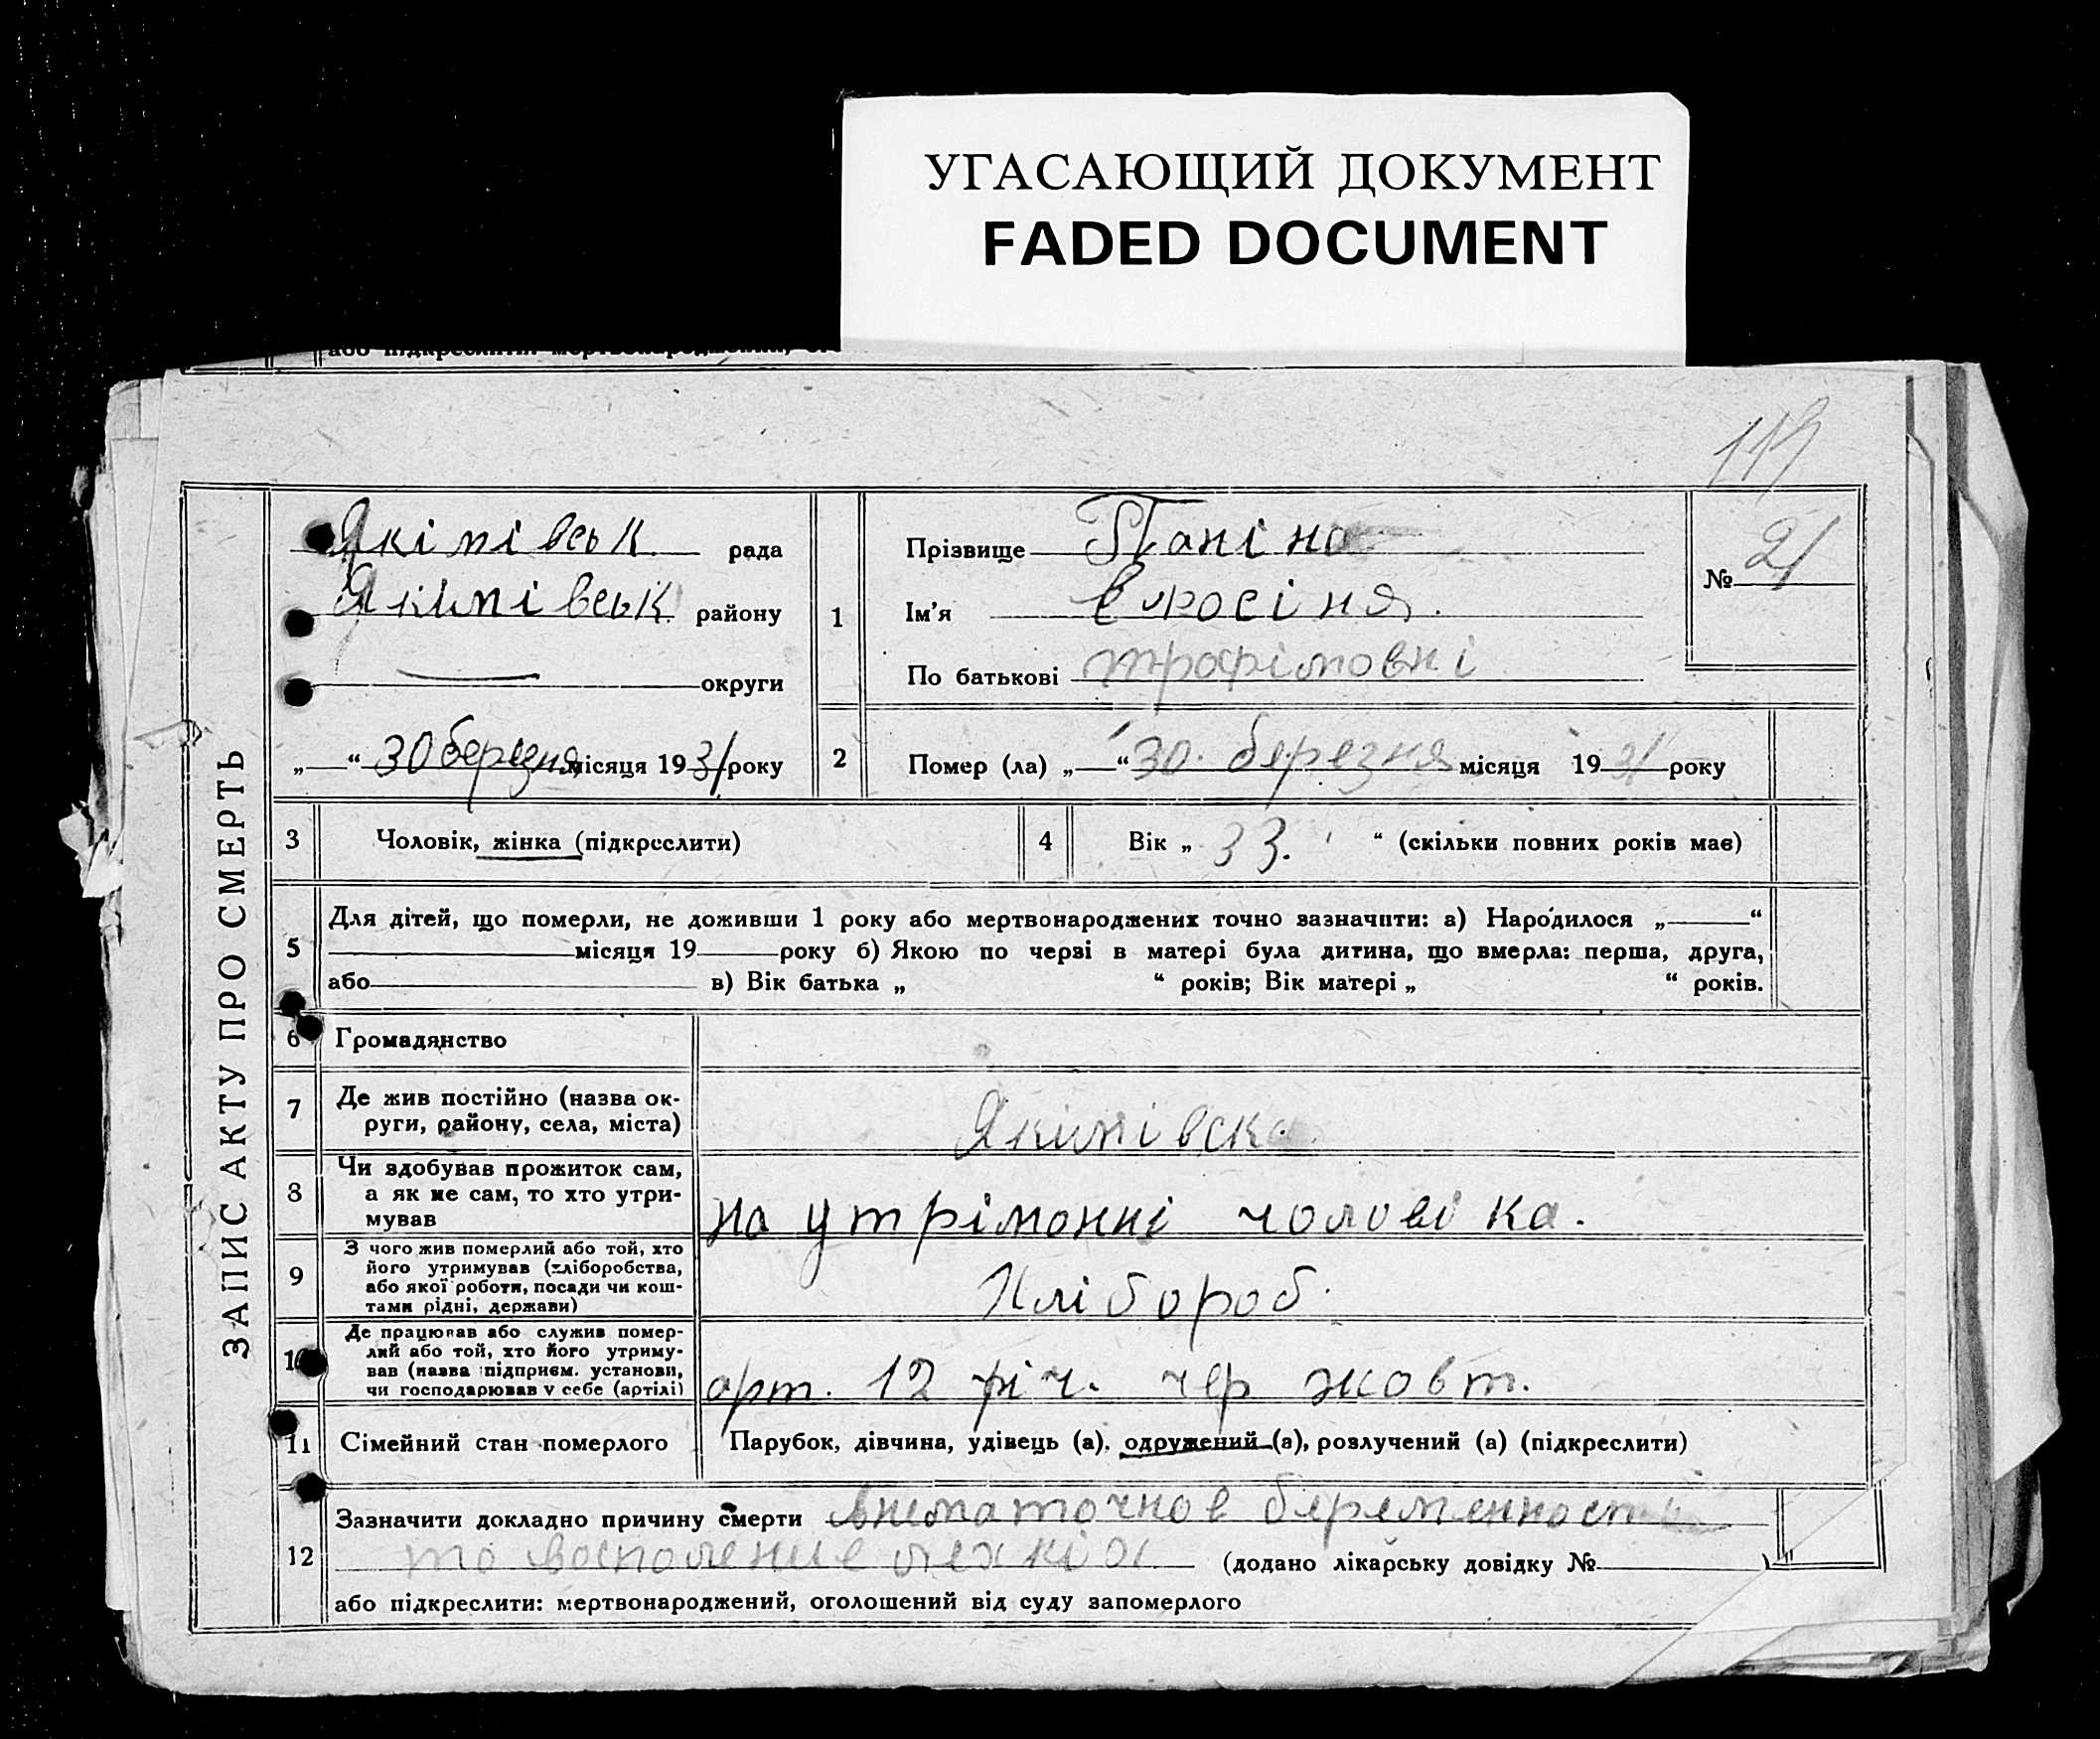 УГАСАЮЩИЙ ДОКУМЕНТ
FADED DOCUMENT
119
ЗАПИС АКТУ ПРО СМЕРТЬ
Якімівськ. рада
Якимівськ району
округи
„ “ 30 березня місяця 1931 року
1
Прізвище Паніна
Ім'я Єфросіня.
По батькові трофімовні
№ 21
2 Помер (ла) „ “ 30. березня місяця 1931 року
3 Чоловік, жінка (підкреслити)
4 Вік „ 33. “ (скільки повних років має)
5 Для дітей, що померли, не доживши 1 року або мертвонароджених точно зазначити: а) Народилося „ “
місяця 19 року б) Якою по черзі в матері була дитина, що вмерла: перша, друга,
або в) Вік батька „ “ років; Вік матері „ “ років.
6 Громадянство
7 Де жив постійно (назва ок-
руги, району, села, міста)
Якимівска
8 Чи здобував прожиток сам,
а як не сам, то хто утри-
мував
на утрімонні чоловіка.
9 З чого жив померлий або той, хто
його утримував (хліборобства,
або якої роботи, посади чи кош-
тами рідні, держави)
Хлібороб.
10 Де працював або служив помер-
лий або той, хто його утриму-
вав (назва підприєм. установи,
чи господарював у себе (артілі)
арт. 12 річ. чер жовт.
11 Сімейний стан померлого Парубок, дівчина, удівець (а), одружений (а), розлучений (а) (підкреслити)
12 Зазначити докладно причину смерти внематочное беременность
то восполение легкіх (додано лікарську довідку № )
або підкреслити: мертвонароджений, оголошений від суду запомерлого